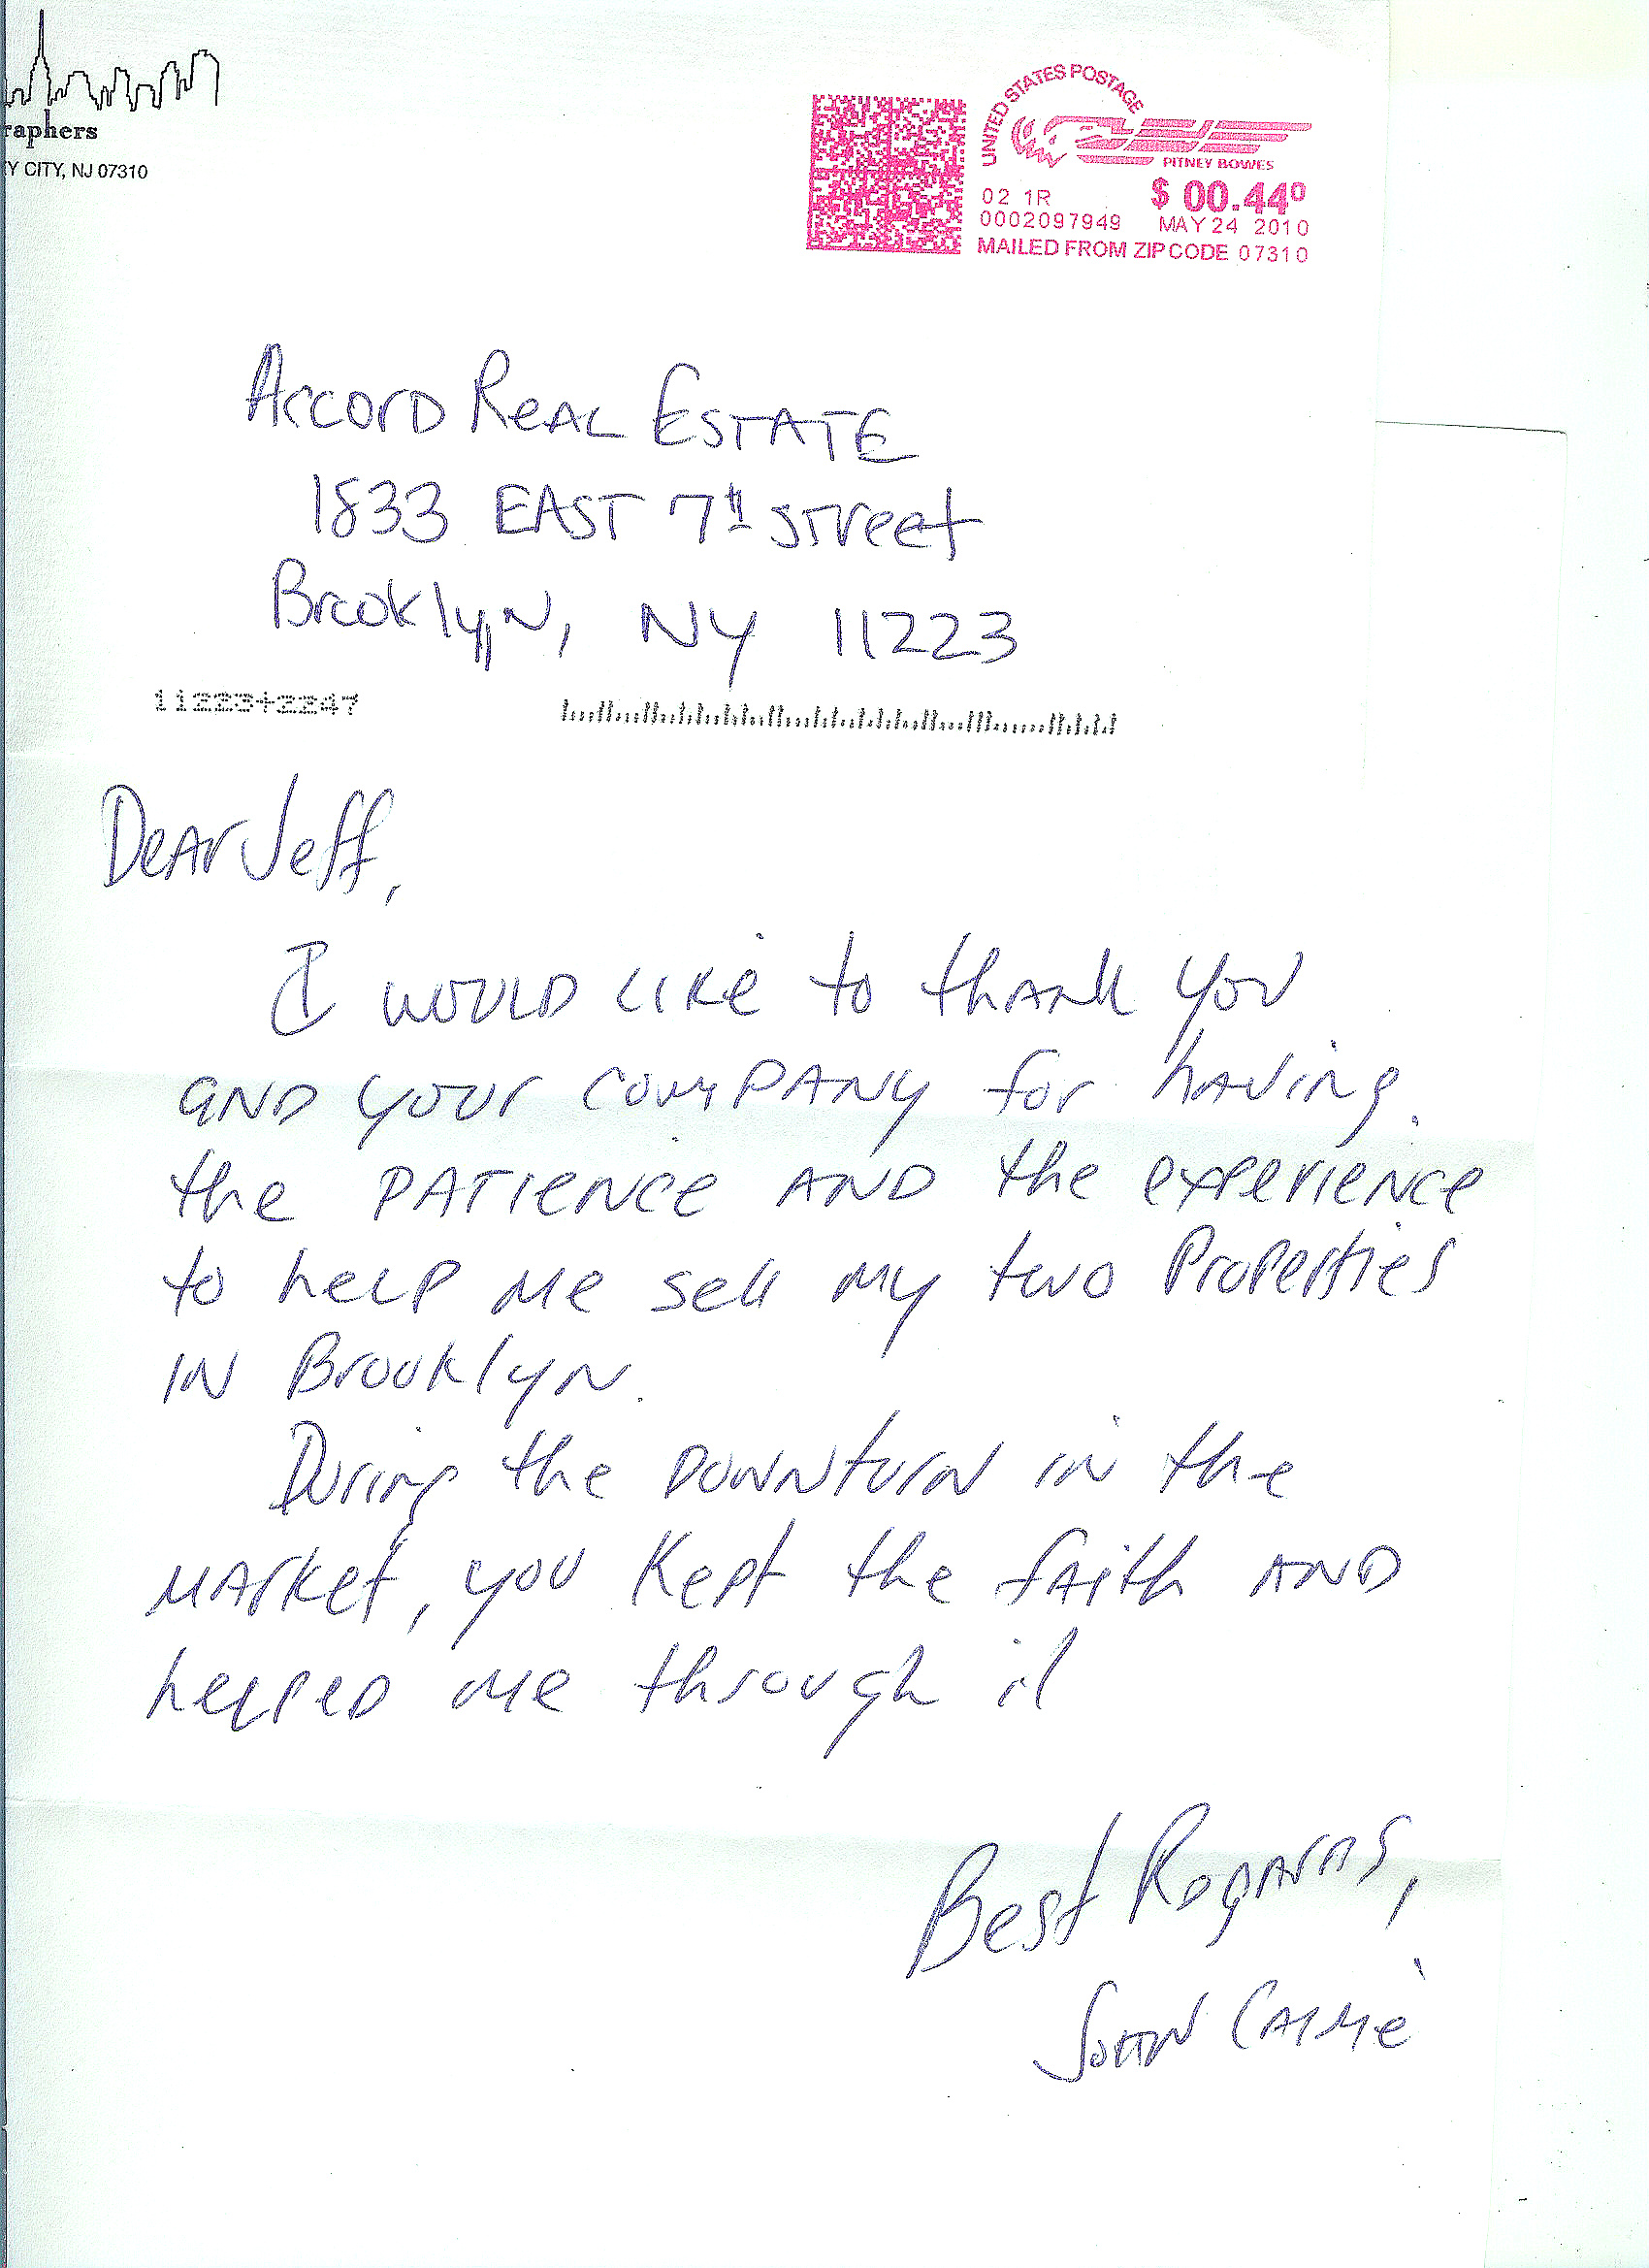 raphers
Y CITY, NJ 07310
UNITED STATES POSTAGE
PITNEY BOWES
02 1R
$ 00.44⁰
0002097949
MAY 24 2010
MAILED FROM ZIP CODE 07310
Accord Real Estate
1833 East 7th Street
Brooklyn, NY 11223
11223+2247
Dear Jeff,
I would like to thank you
and your company for having
the patience and the experience
to help me sell my two properties
in Brooklyn.
During the downturn in the
market, you kept the faith and
helped me through it
Best Regards,
John